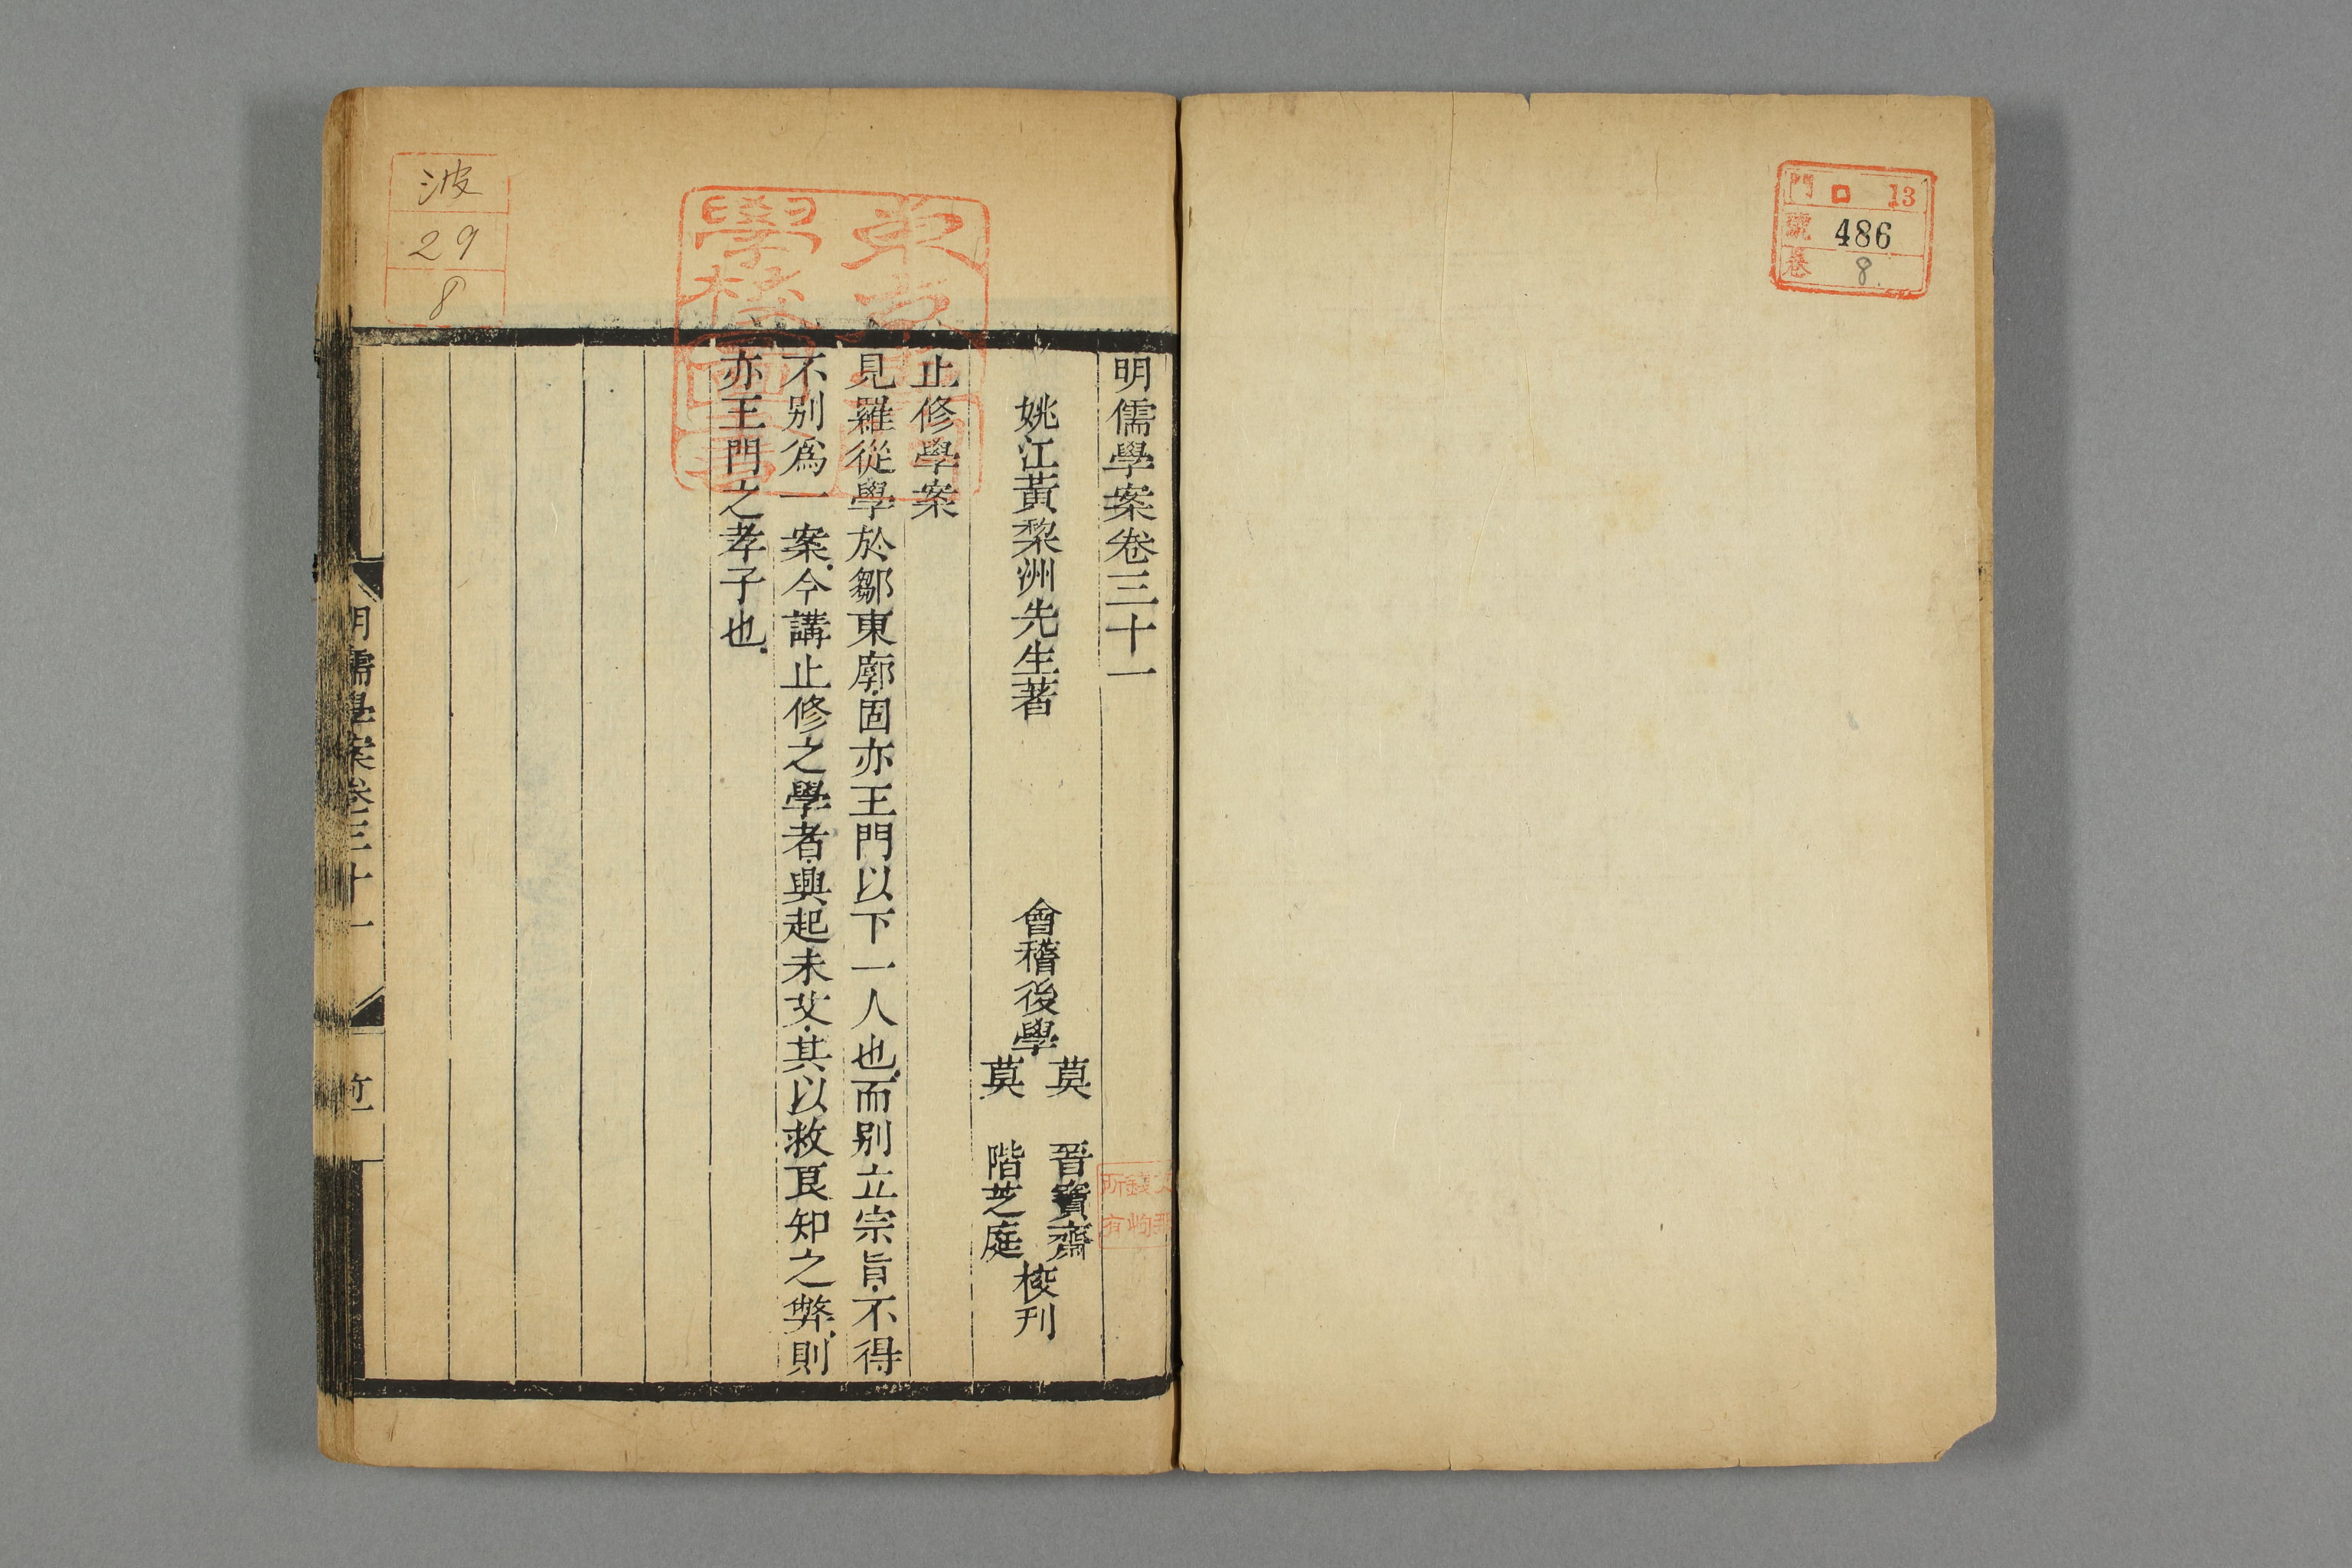 門 口 13
號 486
卷 8
明儒學案卷三十一
姚江黃黎洲先生著 會稽後學 莫晉寶齋 莫階芝庭 校刊
止修學案
見羅從學於鄒東廓固亦王門以下一人也而别立宗旨不得
不别爲一案今講止修之學者興起未艾其以救良知之弊則
亦王門之孝子也
東京專門
學校圖書
波
29
8
明儒學案卷三十一
所有